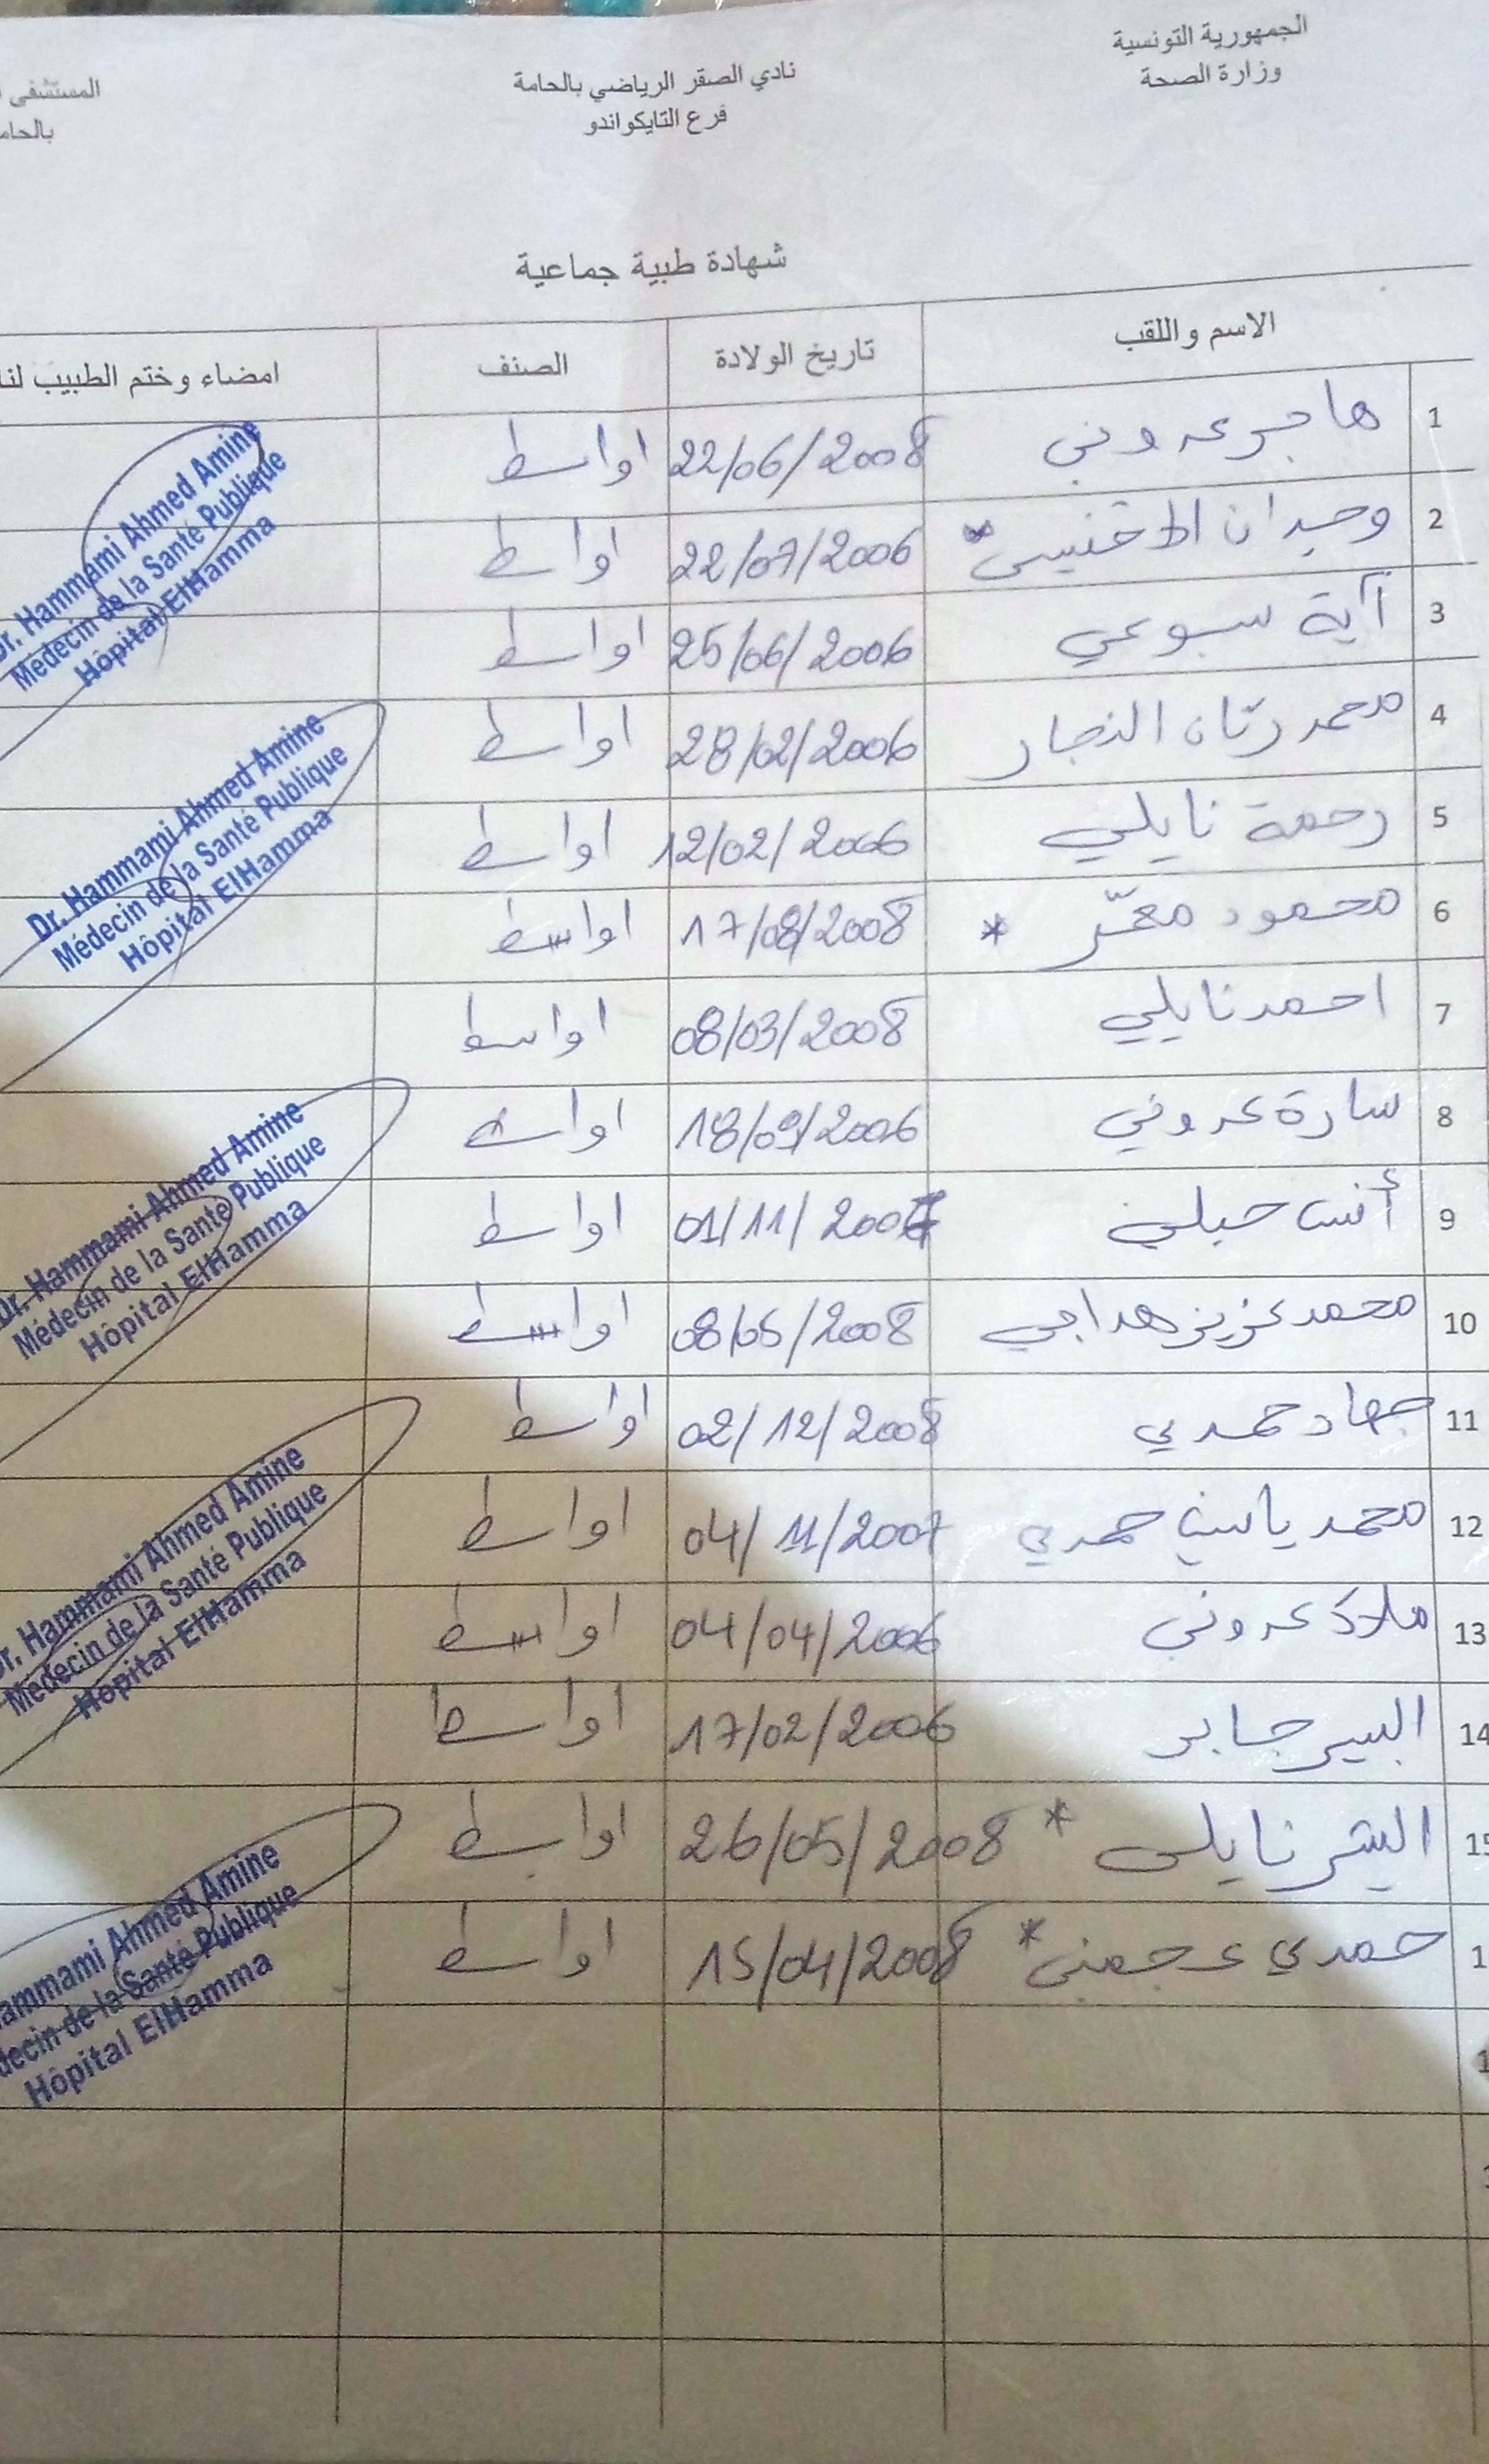 الجمهورية التونسية
وزارة الصحة
نادي الصقر الرياضي بالحامة
فرع التايكواندو
المستشفى
شهادة طبية جماعية
الاسم واللقب تاريخ الولادة الصنف امضاء وختم الطبيب
1 هاجر عدوني 22/06/2008 اواسط
2 وجدان 22/07/2006 اواسط
3 آية سبوعي 25/06/2006 اواسط
4 محمد ريان النجار 28/02/2006 اواسط
5 رحمة نايلي 12/02/2006 اواسط
6 محمود معمّر * 17/08/2008 اواسط
7 احمد نايلي 08/03/2008 اواسط
8 سارة عدوني 18/09/2006 اواسط
9 أنس 01/11/2007 اواسط
10 محمد عزيز هداجي 08/05/2008 اواسط
11 جهاد حمدي 02/12/2008 اواسط
12 محمد ياسين حمدي 04/11/2007 اواسط
13 ملاك عدوني 04/04/2006 اواسط
14 جابر 17/02/2006 اواسط
15 نايلي * 26/05/2008 اواسط
حمدي عجمني * 15/04/2008 اواسط
Dr. Hammami Ahmed Amine
Médecin de la Santé Publique
Hôpital ElHamma
Dr. Hammami Ahmed Amine
Médecin de la Santé Publique
Hôpital ElHamma
Dr. Hammami Ahmed Amine
Médecin de la Santé Publique
Hôpital ElHamma
Dr. Hammami Ahmed Amine
Médecin de la Santé Publique
Hôpital ElHamma
Hammami Ahmed Amine
Médecin de la Santé Publique
Hôpital ElHamma